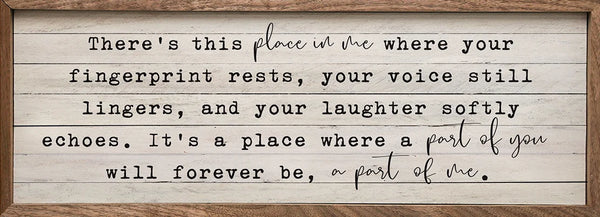 There's this place in me where your
fingerprint rests, your voice still
lingers, and your laughter softly
echoes. It's a place where a part of you
will forever be, a part of me.